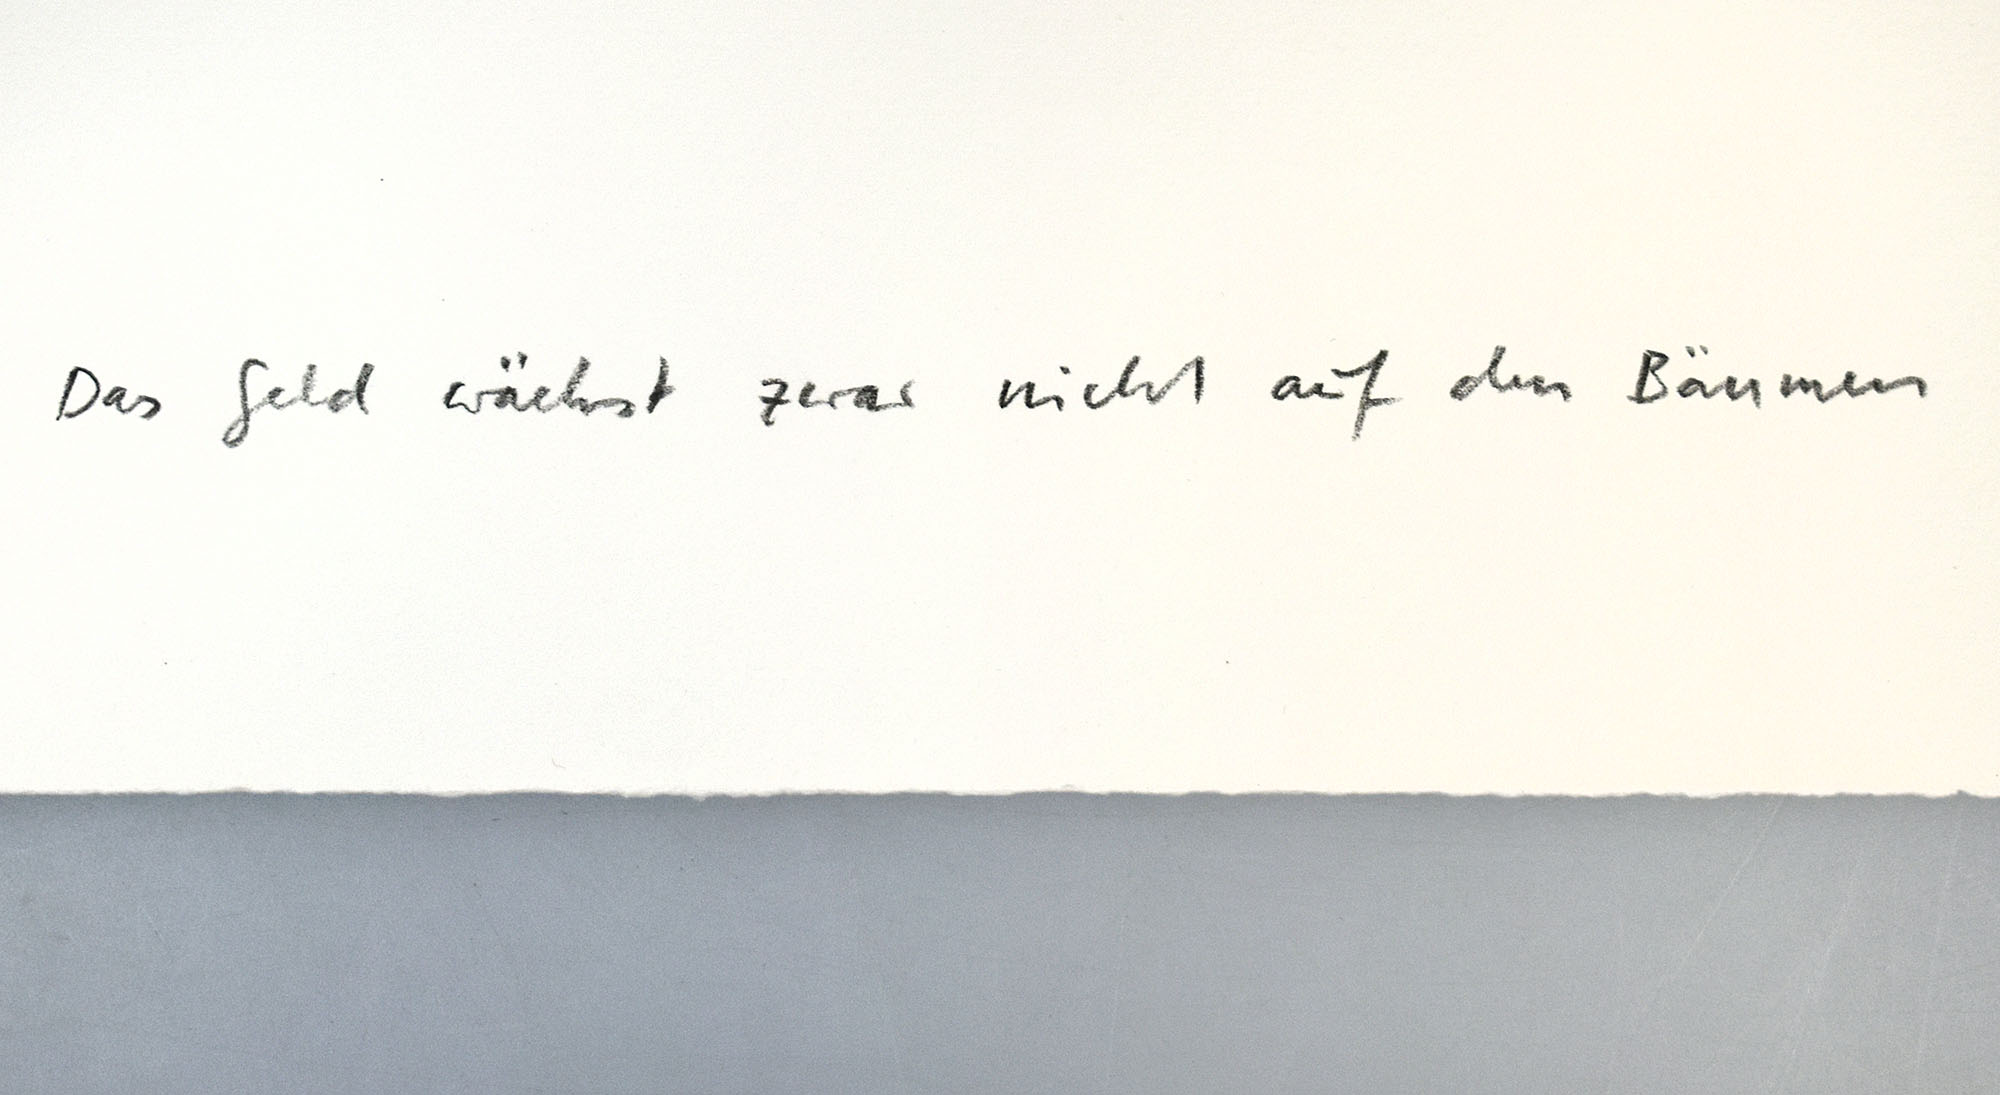 Das Geld wächst zwar nicht auf den Bäumen